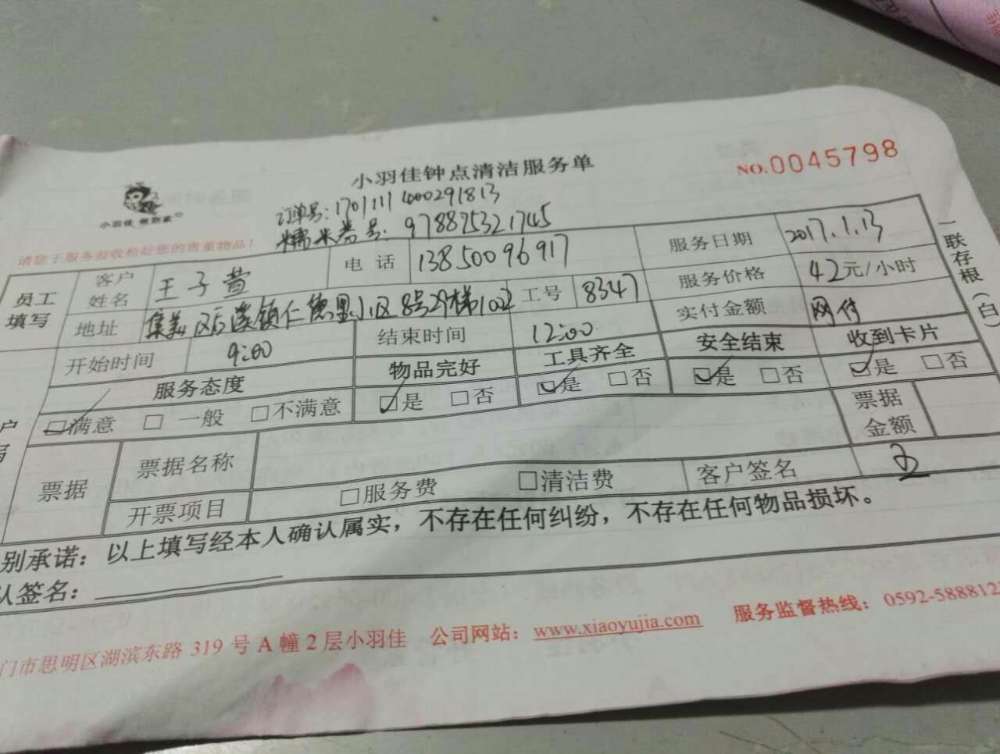 小羽佳钟点清洁服务单
NO.0045798
小羽佳
订单号:1701111400291813
糯米券号: 978875321745
请您于服务验收检好您的贵重物品!
员工填写 客户姓名 王子萱 电话 13850096917 服务日期 2017.1.13
地址 集美区后溪镇仁德里小区8号29梯102 工号 8347 服务价格 42元/小时
开始时间 9:00 结束时间 12:00 实付金额 网付
服务态度 物品完好 工具齐全 安全结束 收到卡片
☑满意 □一般 □不满意 ☑是 □否 ☑是 □否 ☑是 □否 ☑是 □否
票据 票据名称 票据金额
开票项目 □服务费 □清洁费 客户签名 王
别承诺:以上填写经本人确认属实,不存在任何纠纷,不存在任何物品损坏。
认签名:
门市思明区湖滨东路 319 号 A 幢 2 层小羽佳 公司网站:www.xiaoyujia.com 服务监督热线:0592-5888812
一联存根(白)